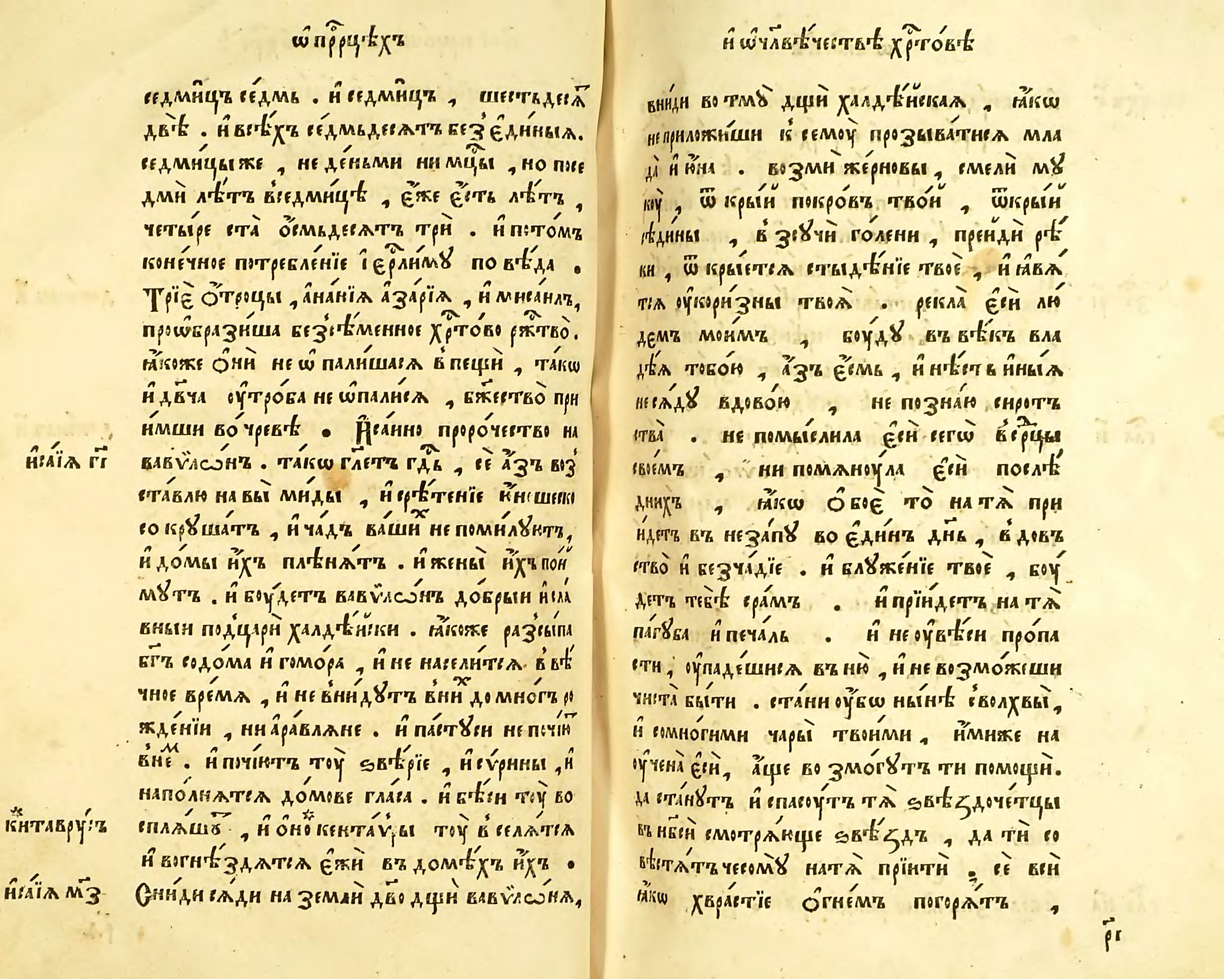 ѡ҆ прⷪ҇рцѣхъ
седми́цъ се́дмь . и҆ седми́цъ , шестьдесѧ́тⸯ
двѣ̀ . и҆ всѣ́хъ се́дмьдесѧтъ без̾ є҆ди́ныѧ.
седми́цы же , не де́ньми ни мцⷭ҇ы , но по се
дмѝ лѣ́тъ в̾седми́цѣ , є҆́же є҆́сть лѣ́тъ ,
четы́ре ста̀ о҆́смьдесѧтъ трѝ . и҆ пото́мъ
коне́чное потребле́нїе і҆ерⷭ҇ли́мꙋ по вѣ́да .
Трїѐ ѻ҆́троцы , а҆на́нїѧ а҆за́рїѧ , и҆ мисаи́лъ,
проѡ҆брази́ша без̾сѣ́менное хрⷭ҇то́во ржⷭ҇тво̀.
ꙗ҆́коже ѻ҆нѝ не ѡ҆ пали́шасѧ в̾ пещѝ , та́кѡ
и҆ дв҃ча ᲂу҆тро́ба не ѡ҆пали́сѧ , бжⷭ҇ество̀ при
и́мши во чре́вѣ . И҆са́ино проро́чество на
вавѷлѡ́нъ . та́кѡ гл҃етъ гдⷭ҇ь , сѐ а҆́зъ воз̾
ста́влю на вы̀ ми́ды , и҆ срѣ́тенїе ю҆́ношеско
со крꙋша́тъ , и҆ ча́дъ ва́шиⷯ не поми́лꙋютъ,
и҆ до́мы и҆́хъ плѣнѧ́тъ . и҆ жены̀ и҆́хъ пои́
мꙋтъ . и҆ бᲂу́детъ вавѷлѡ́нъ до́брыи и҆ сла́
вныи под̾царѝ халдѣ́йски . ꙗ҆́коже раз̾сы́па
бг҃ъ содо́ма и҆ гомо́ра , и҆ не насели́тсѧ в̾ вѣ́
чное вре́мѧ , и҆ не в̾ни́дꙋтъ в̾ни́ⷯ до мно́гъ ро
жде́нїи , ни а҆равлѧ́не . и҆ пастꙋ́си не почі́ютⸯ
в̾не́ⷨ . и҆ почі́ютъ тᲂу̀ ѕвѣ́рїе , и҆ си́рины , и҆
напо́лнѧтсѧ до́мове гла́са . и҆ бѣ́си тᲂу̀ во
сплѧ́шꙋⷮ , и҆ о҆но кента́ѵры тᲂу̀ в̾ селѧ́тсѧ
и҆ вогнѣ́здѧтсѧ є҆жѝ въ домѣ́хъ и҆́хъ .
Сни́ди сѧ́ди на землѝ дв҃о дщѝ вавѷлѡ́нѧ,
и҆са́їѧ гі҃
и҆са́їѧ мз҃
и҆ ѡ҆ чл҃вѣ́чествѣ хрⷭ҇то́вѣ
вни́ди во тмꙋ̀ дщѝ халдѣ́йскаѧ , ꙗ҆́кѡ
не приложи́ши к̾ семᲂу̀ прозыва́тисѧ мла
да̀ и҆ ю҆на . возмѝ же́рновы , смелѝ мꙋ
кᲂу̀ , ѿ кры́й покро́въ тво́й , ѿкры́й
сѣди́ны , в̾ зсᲂучѝ го́лени , преидѝ рѣ́
ки , ѿ кры́етсѧ стыдѣ́нїе твоѐ , и҆ ꙗ҆вѧ́
тсѧ ᲂу҆кори́зны твоѧ̀ . рекла̀ є҆сѝ лю́
демъ мои́мъ , бᲂу́дꙋ въ вѣ́къ вла
дѣ́ѧ тобо́ю , а҆́зъ є҆́смь , и҆ нѣ́сть в̾ ины́ѧ
не сѧ́дꙋ вдово́ю , не позна́ю сиротъ
ства̀ . не помы́слила є҆сѝ сегѡ̀ в̾ срⷣцы
свое́мъ , ни помѧнᲂу́ла є҆сѝ послѣ́
днихъ , ꙗ҆́кѡ ѻ҆боѐ то̀ на тѧ̀ при
и́детъ въ неза́пꙋ во є҆ди́нъ дн҃ь , в̾ довъ
ство̀ и҆ безча́дїе . и҆ блꙋже́нїе твоѐ , бᲂу́
детъ тебѣ̀ сра́мъ . и҆ прїи́детъ на тѧ̀
па́гꙋба и҆ печа́ль . и҆ не ᲂу҆вѣ́си про́па
сти , ᲂу҆паде́шисѧ въ ню̀ , и҆ не возмо́жеши
чиста̀ бы́ти . ста́ни ᲂу҆́бѡ ны́нѣ с̾волхвы̀,
и҆ со мно́гими ча́ры твои́ми , и҆́миже на
ᲂучена̀ є҆сѝ, а҆́ще во змо́гꙋтъ ти помощѝ.
да ста́нꙋтъ и҆ спасᲂу́тъ тѧ̀ ѕвѣздоче́тцы
въ нб҃сѝ смотрѧ́юще ѕвѣ́здъ , да тѝ со
вѣстѧ́тъ чесо́мꙋ на тѧ̀ прїитѝ . сѐ всѝ
ꙗ҆́кѡ хвра́стїе ѻ҆гне́мъ погорѧ́тъ ,